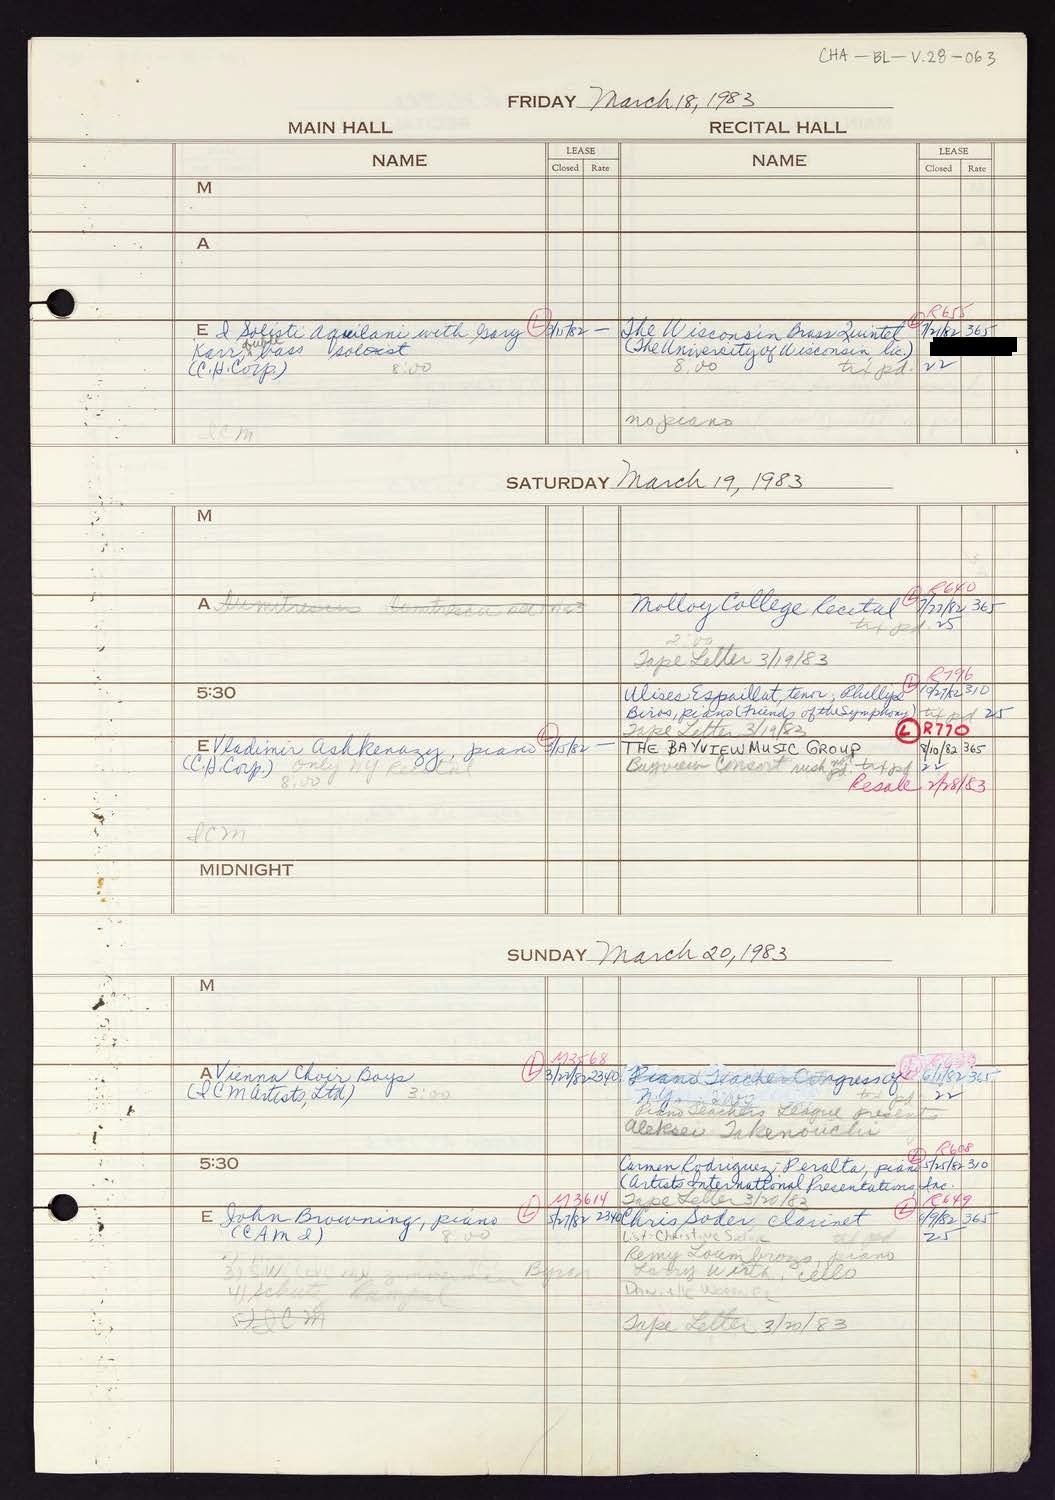 CHA-BL-V.28-063
FRIDAY March 18, 1983
MAIN HALL RECITAL HALL
NAME LEASE Closed Rate NAME LEASE Closed Rate
M
A
R655
E I Solisti Aquilani with Gary Ⓛ 3/15/82 — The Wisconsin Brass Quintet Ⓛ 7/21/82 365
Karr, double bass soloist (The University of Wisconsin, Inc.)
(C.H. Corp.) 8:00 8:00 tix pd. 22
no piano
ICM
SATURDAY March 19, 1983
M
R640
A Molloy College Recital Ⓛ 7/22/82 365
tix pd. 25
2:00
Tape Letter 3/19/83
R796
5:30 Ulises Espaillat, tenor; Phillips Ⓛ 10/27/82 310
Biros, piano (Friends of the Symphony) tix pd 25
Tape Letter 3/19/83 Ⓛ R770
E Vladimir Ashkenazy, piano Ⓛ 3/15/82 — THE BAYVIEW MUSIC GROUP 8/10/82 365
(C.H. Corp.) only NY Recital Bayview Consort tix pd 22
8:00 Resale 2/28/83
ICM
MIDNIGHT
SUNDAY March 20, 1983
M
M3568
A Vienna Choir Boys Ⓛ 3/22/82 2340 Piano Teachers Congress of Ⓛ 6/1/82 365
(ICM Artists, Ltd) 3:00 N.Y. 2:00 tix pd 22
Piano Teachers League presents
Aleksei Takenouchi
R608
5:30 Carmen Rodriguez-Peralta, piano Ⓛ 5/25/82 310
(Artists International Presentations, Inc.
M3614 Tape Letter 3/20/83 R649
E John Browning, piano Ⓛ 5/27/82 2340 Chris Soder, clarinet Ⓛ 6/9/82 365
(CAMI) 8:00 List-Christine Soder tix pd 25
Remy Loumbrozo, piano
Larry Wirth, cello
Byron
4)
5) ICM Tape Letter 3/20/83